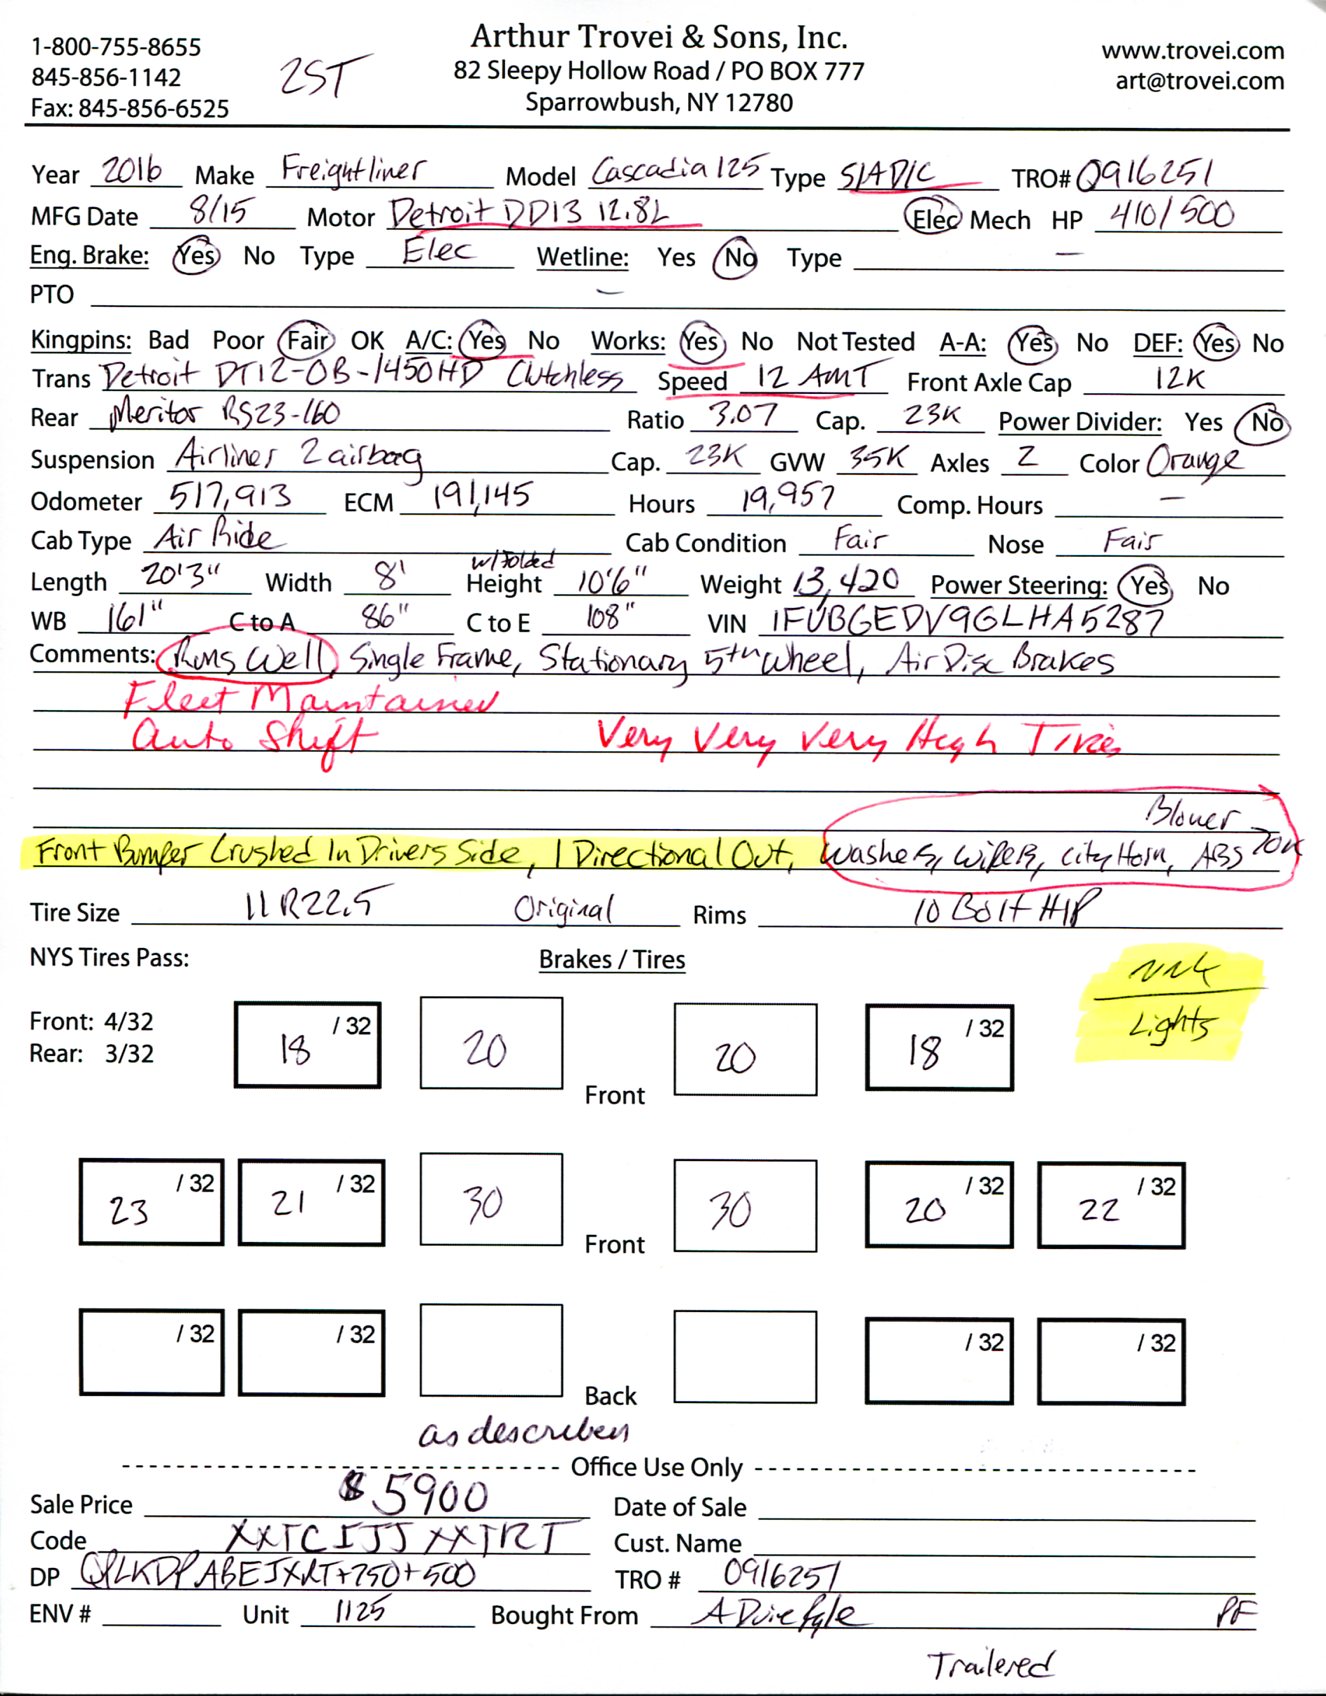 1-800-755-8655
845-856-1142
Fax: 845-856-6525
2ST
Arthur Trovei & Sons, Inc.
82 Sleepy Hollow Road / PO BOX 777
Sparrowbush, NY 12780
www.trovei.com
art@trovei.com
Year 2016 Make Freightliner Model Cascadia 125 Type S/A D/C TRO# 0916251
MFG Date 8/15 Motor Detroit DD13 12.8L Elec Mech HP 410/500
Eng. Brake: Yes No Type Elec Wetline: Yes No Type —
PTO —
Kingpins: Bad Poor Fair OK A/C: Yes No Works: Yes No Not Tested A-A: Yes No DEF: Yes No
Trans Detroit DT12-OB-1450HD Clutchless Speed 12 AMT Front Axle Cap 12K
Rear Meritor RS23-160 Ratio 3.07 Cap. 23K Power Divider: Yes No
Suspension Airliner 2 airbag Cap. 23K GVW 35K Axles 2 Color Orange
Odometer 517,913 ECM 191,145 Hours 19,957 Comp. Hours —
Cab Type Air Ride Cab Condition Fair Nose Fair
Length 20'3" Width 8' w/Folded Height 10'6" Weight 13,420 Power Steering: Yes No
WB 161" C to A 86" C to E 108" VIN 1FUBGEDV9GLHA5287
Comments: Runs Well, Single Frame, Stationary 5th Wheel, Air Disc Brakes
Fleet Maintained
Auto Shift Very Very Very High Tires
Blower
Front Bumper Crushed In Drivers Side, 1 Directional Out, Washers, Wipers, City Horn, ABS
Tire Size 11R22.5 Original Rims 10 Bolt H/P
NYS Tires Pass: Brakes / Tires
Lights
Front: 4/32
Rear: 3/32
18 /32 20 Front 20 18 /32
23 /32 21 /32 30 Front 30 20 /32 22 /32
/32 /32 Back /32 /32
as described
Office Use Only
Sale Price $5900 Date of Sale
Code XXTCIJJXXTRT Cust. Name
DP QPLKDPABEJXRT+750+500 TRO # 0916251
ENV # Unit 1125 Bought From PF
Trailered